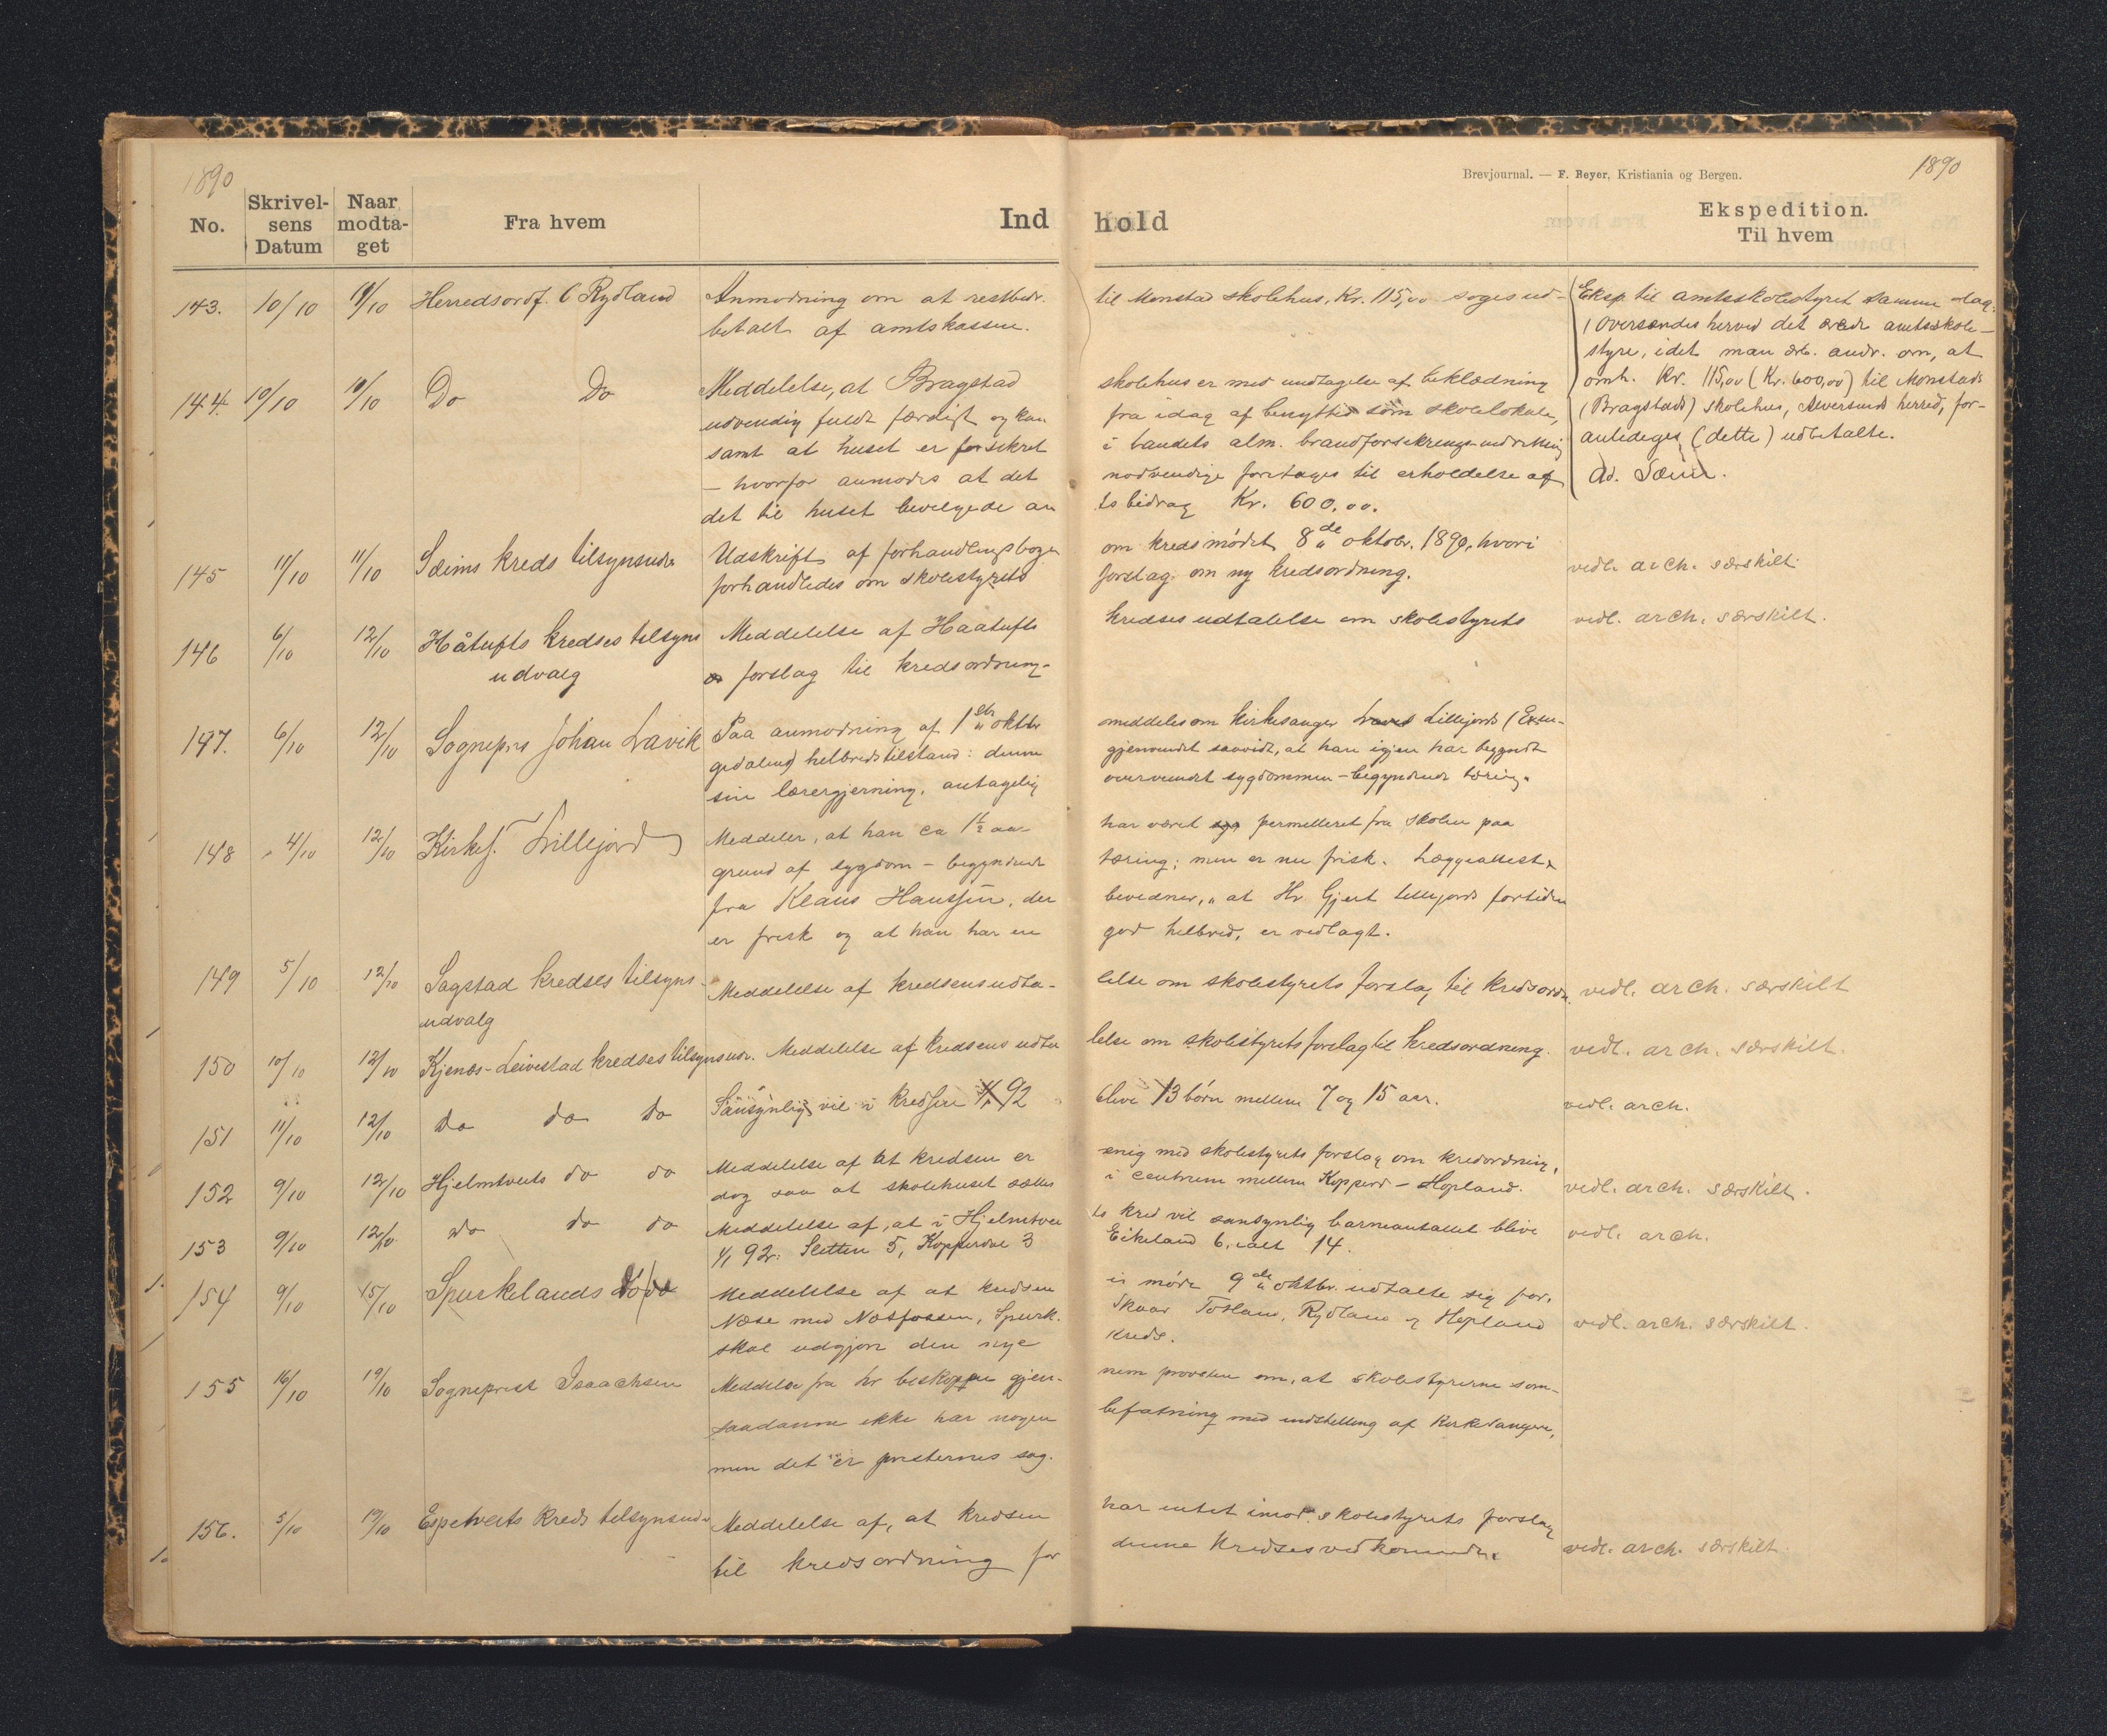 1890
No.
Skrivelsens Datum
Naar modtaget
Fra hvem
Ind
143. 10/10 10/10 Herredsordf. O Rydland Anmodning om at restbidr.
betalt af amtskassen.
144. 10/10 10/10 Do Do Meddelelse, at Bragstad
udvendig fuldt færdigt og kan
samt at huset er forsikret
– hvorfor anmodes at det
det til huset bevilgede am
145 11/10 11/10 Sæims kreds tilsynsudv Udskrift af forhandlingsbogen
forhandledes om skolestyrets
146 6/10 12/10 Håtufts kredses tilsyns Meddelelse af Haatufts
udvalg forslag til kredsordning-
147. 6/10 12/10 Sognepr. Johan Lavik Paa anmodning af 1ste oktbr
gedalens) helbredstilstand: denne
sin lærergjerning, antagelig
148 4/10 12/10 Kirkes. Lillejord Meddeler, at han ca 1½ aa-
grund af sygdom – begyndende
fra Klaus Hanssen, der
er frisk og at han har en
149 5/10 12/10 Sagstad kredses tilsyns- Meddelelse af kredsens udta-
udvalg
150 10/10 12/10 Kjenæs-Leivestad kredses tilsynsudv. Meddelelse af kredsens udta
151 11/10 12/10 do do do Sansynligvis vil i kredsen 1/1 92
152 9/10 12/10 Hjelmtveits do do Meddelelse af at kredsen er
dog saa at skolehuset sættes
153 9/10 12/10 do do do Meddelelse af, at i Hjelmtvei
1/1 92: Sletten 5, Kopperdal 3
154 9/10 15/10 Spurkelands do do Meddelelse af at kredsen
Næse med Næsfossen, Spurk.
skal udgjøre den nye
155 16/10 19/10 Sogneprest Isaachsen Meddeler fra hr biskoppen gjen-
saadanne ikke har nogen
men det er presternes sag.
156. 5/10 19/10 Espetveits kreds tilsynsudv Meddelelse af, at kredsen
til kredsordning for
Brevjournal. — F. Beyer, Kristiania og Bergen.
1890
hold
Ekspedition.
Til hvem
til Monstad skolehus, Kr. 115,00 søges ud-
skolehus er med undtagelse af beklædning
fra idag af benyttes som skolelokale,
i landets alm. brandforsikrings-indretning
nødvendige foretages til erholdelse af
ts bidrag Kr. 600,00.
Eksp. til amtsskolestyret samme dag:
(Oversendes herved det ærede amtsskole-
styre, idet man ærb. andr. om, at
omh. Kr. 115,00 (Kr. 600,00) til Monstads
(Bragstads) skolehus, Alversunds herred, for-
anlediges (dette) udbetalte.
Ad. Sæim.
om kredsmødet 8de oktobr. 1890, hvori
forslag om ny kredsordning. vedl. arch. særskilt.
kredses udtalelse om skolestyrets vedl. arch. særskilt.
meddeles om kirkesanger Lillejords (Eksin-
gjenvundet saavidt, at han igjen har begyndt
overvundet sygdommen – begyndende tæring.
har været permitteret fra skolen paa
tæring; men er nu frisk. Lægeattest
bevidner, at Hr Gjert Lillejord fortiden
god helbred, er vedlagt.
lelse om skolestyrets forslag til kredsordn. vedl. arch. særskilt
lelse om skolestyrets forslag til kredsordning. vedl. arch. særskilt.
blive 13 børn mellem 7 og 15 aar. vedl. arch.
enig med skolestyrets forslag om kredsordning,
i centrum mellem Kopperd – Hopland. vedl. arch. særskilt.
ts kred vil sansynlig barneantallet blive
Eikeland 6, ialt 14. vedl. arch.
i møde 9de oktbr. udtalte sig for,
Skaar Tosland, Rydland og Hopland vedl. arch. særskilt.
kreds.
nem provsten om, at skolestyrerne som
befatning med indstilling af kirkesangere,
har intet imod skolestyrets forslag
denne kredses vedkommende. vedl. arch. særskilt.